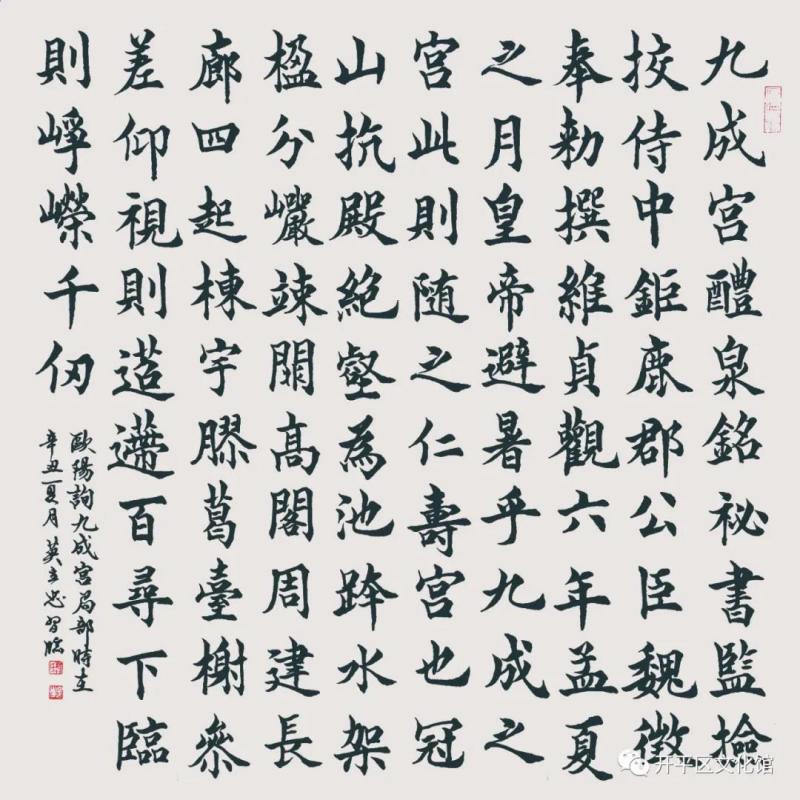 九成宮醴泉銘祕書監撿
挍侍中鉅鹿郡公臣魏徵
奉勑撰維貞觀六年孟夏
之月皇帝避暑乎九成之
宮此則随之仁壽宮也冠
山抗殿絕壑為池跨水架
楹分巖竦闕高閣周建長
廊四起棟宇膠葛臺榭叅
差仰視則迢遰百尋下臨
則崢嶸千仞
歐陽詢九成宮局部時在
辛丑夏月莫立忠習臨
开平区文化馆